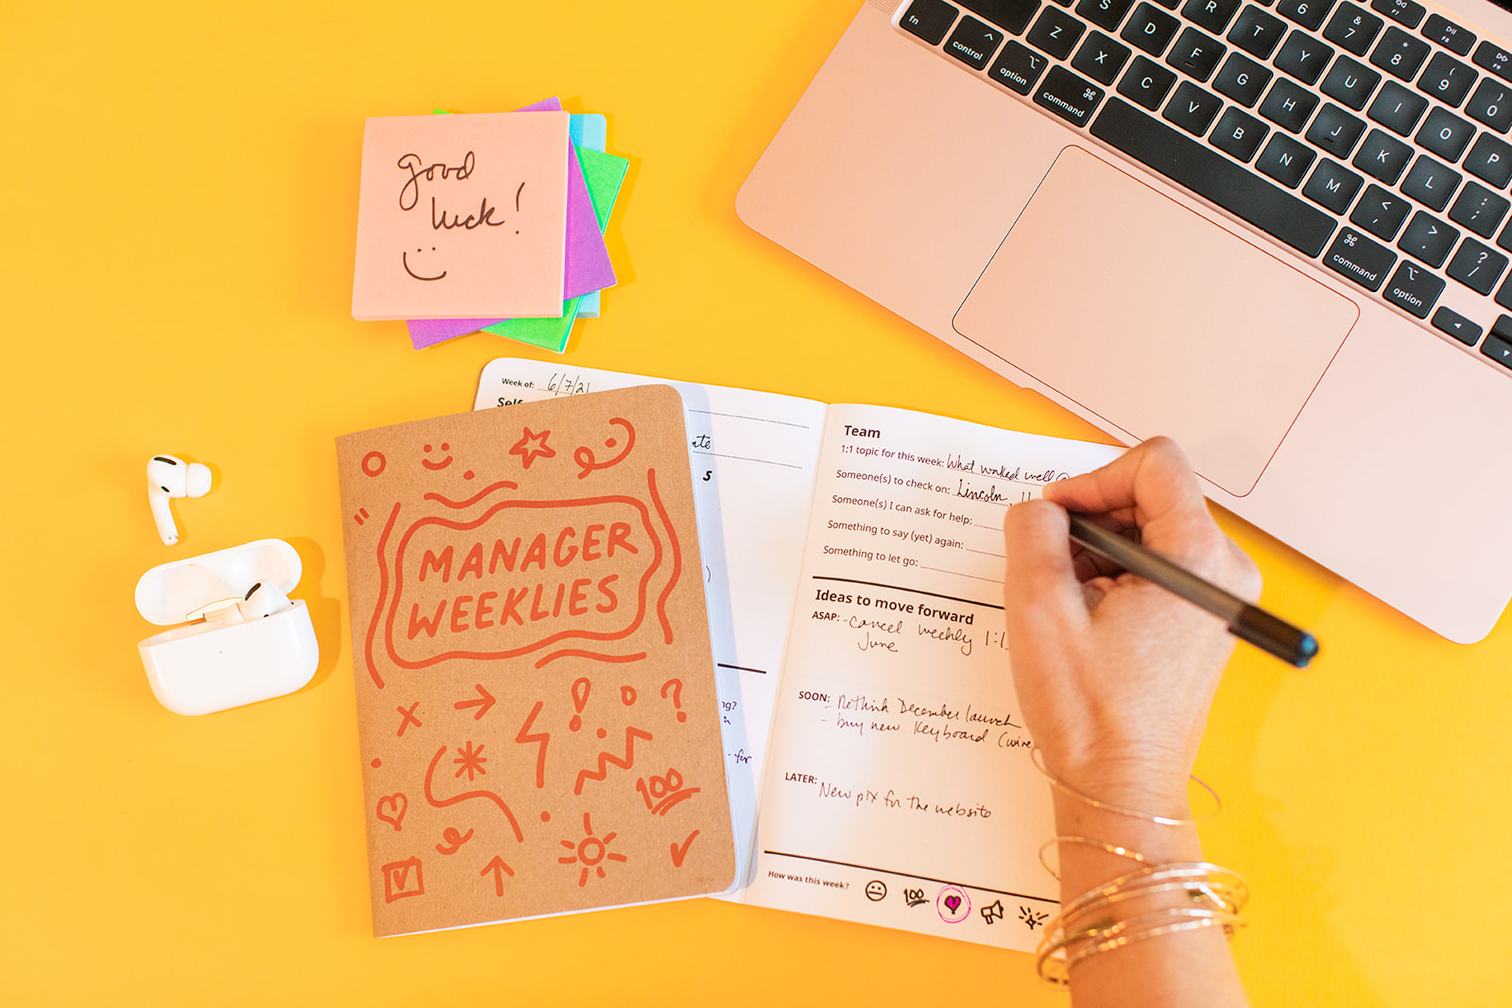 Good
luck!
fn
control
option
command
Z
X
C
V
B
N
M
S
D
F
G
H
J
K
L
R
T
Y
U
I
O
P
& 7
* 8
( 9
0
command
option
Week of: 6/7/21
Self
ate
5
ng?
for
MANAGER
WEEKLIES
100
Team
1:1 topic for this week: What worked well @
Someone(s) to check on: Lincoln,
Someone(s) I can ask for help:
Something to say (yet) again:
Something to let go:
Ideas to move forward
ASAP: - cancel weekly 1:1
June
SOON: - Rethink December launch
- buy new keyboard (wire
LATER: New pix for the website
How was this week? 100